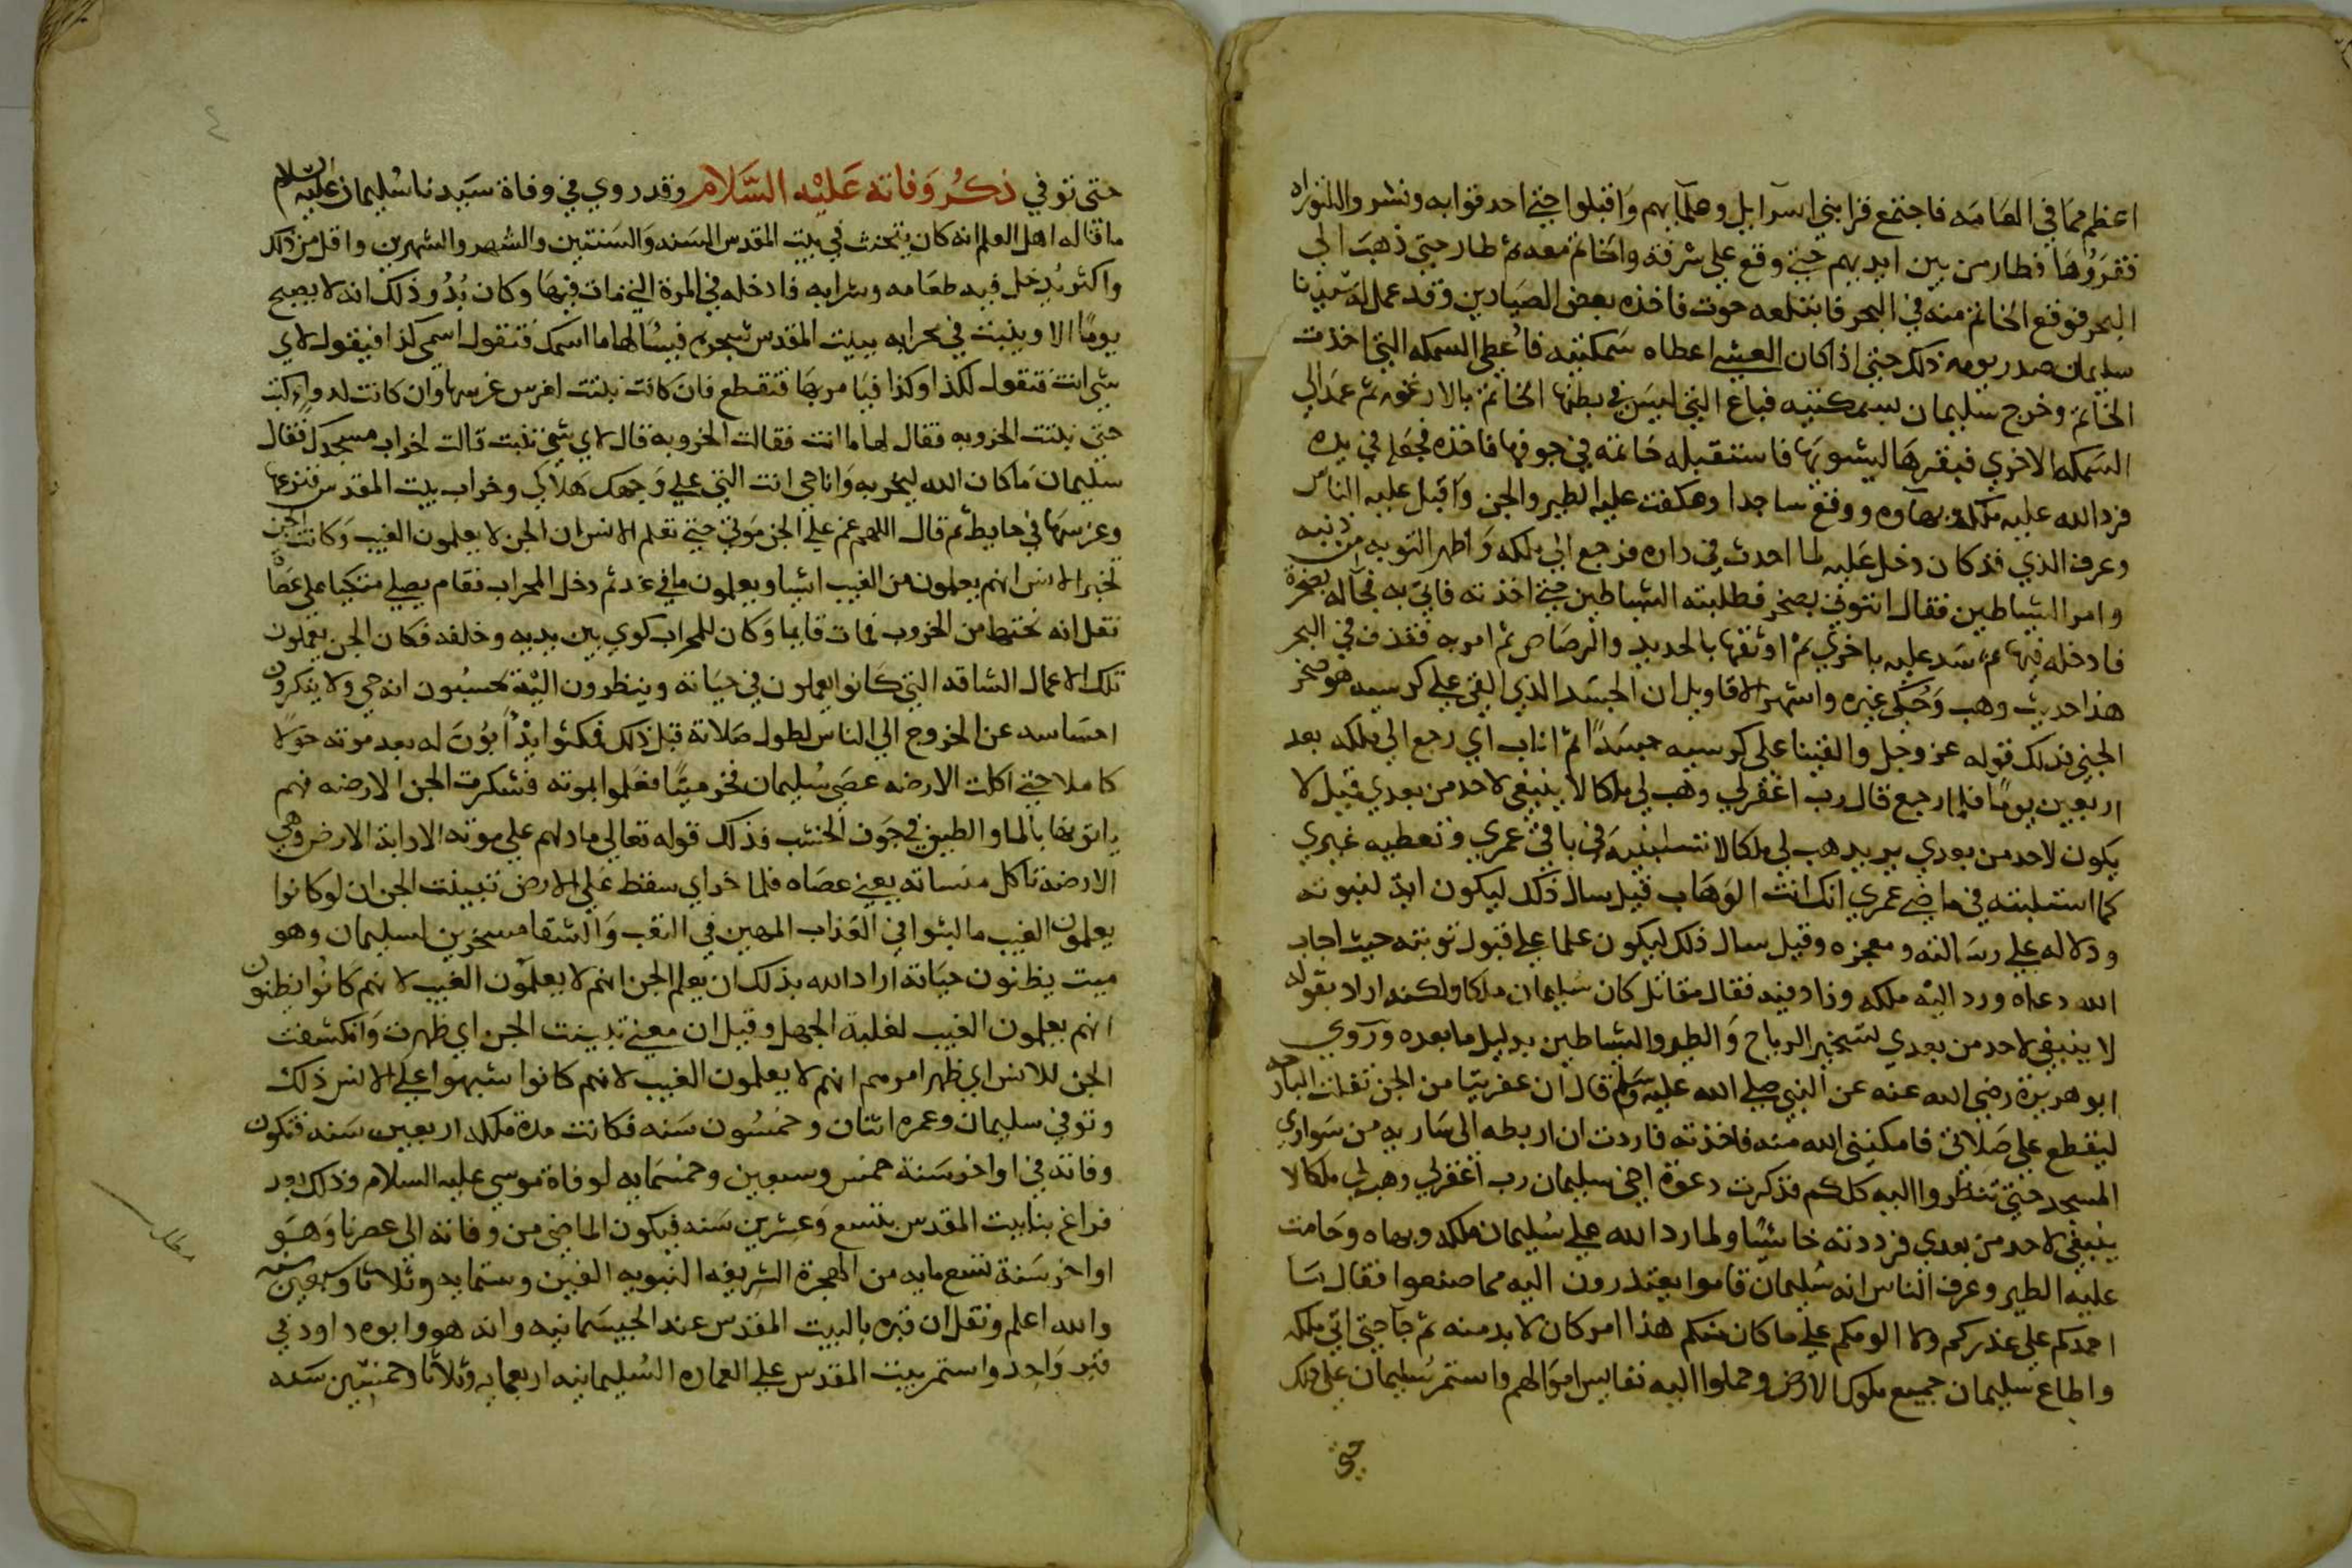 اعظم مما في العامه فاجتمع قرا بني اسرآيل وعلمآيهم واقبلوا حتي احدقوا به ونشروا التوراه
فقروها فطار من بين ايديهم حتي وقع علي شرفة والخاتم معه ثم طار حتي ذهب الي
البحر فوقع الخاتم منه في البحر فابتلعه حوت فاخذه بعض الصيادين وقد عمل له سيدنا
سليمان صدر يومه ذلك حتي اذا كان العشي اعطاه سمكتيه فاعطي السمكه التي اخذت
الخاتم وخرج سليمان بسمكتيه فباع التي ليس في بطنها الخاتم بالارغفه ثم عمد الي
السمكه الاخري فبقرها ليشويها فاستقبله خاتمه في جوفها فاخذه فجعله في يده
فرد الله عليه ملكه وبهآوه ووقع ساجدا وعكفت عليه الطير والجن واقبل عليه الناس
وعرف الذي قد كان دخل عليه لما احدث في داره فرجع الي ملكه واظهر التوبه من ذنبه
وامر الشياطين فقال ائتوني بصخر فطلبته الشياطين حتي اخذته فاتي به فجآ له بصخرة
فادخله فيها ثم سد عليه باخري ثم اوثقها بالحديد والرصاص ثم امر به فقذف في البحر
هذا حديث وهب وحكي غيره واشهر الاقاويل ان الجسد الذي القي علي كرسيه هو صخر
الجني فذلك قوله عز وجل والقينا علي كرسيه جسدا ثم اناب اي رجع الي ملكه بعد
اربعين يوما فلما رجع قال رب اغفر لي وهب لي ملكا لا ينبغي لاحد من بعدي قيل لا
يكون لاحد من بعدي يريد هب لي ملكا لا تسلبنيه في باقي عمري وتعطيه غيري
كما استلبته في ماضي عمري انك انت الوهاب قيل سال ذلك ليكون اية لنبوته
ودلاله علي رسالته ومعجزه وقيل سال ذلك ليكون علما علي قبول توبته حيث اجاب
الله دعاه ورد اليه ملكه وزاد فيه فقال مقاتل كان سليمان ملكا ولكنه اراد بقوله
لا ينبغي لاحد من بعدي تسخير الرياح والطير والشياطين بدليل ما بعده وروي
ابو هريرة رضي الله عنه عن النبي صلي الله عليه وسلم قال ان عفريتا من الجن تفلت البارحه
ليقطع علي صلاتي فامكنني الله منه فاخذته فاردت ان اربطه الي ساريه من سواري
المسجد حتي تنظروا اليه كلكم فذكرت دعوة اخي سليمان رب اغفر لي وهب لي ملكا لا
ينبغي لاحد من بعدي فرددته خاسئا ولما رد الله علي سليمان ملكه وبهاه وحامت
عليه الطير وعرف الناس انه سليمان قاموا يعتذرون اليه مما صنعوا فقال سا
احمدكم علي عذركم ولا الومكم علي ما كان منكم هذا امر كان لا بد منه ثم جا حتي اتي ملكه
واطاع سليمان جميع ملوك الارض وحملوا اليه نفايس اموالهم واستمر سليمان علي ملكه
حتي
حتي توفي ذكر وفاته عليه السلام وقد روي في وفاة سيدنا سليمان عليه السلام
ما قاله اهل العلم انه كان يتحنث في بيت المقدس السنه والسنتين والشهر والشهرين واقل من ذلك
واكثر يدخل فيه طعامه وشرابه فادخله في المرة التي مات فيها وكان بدو ذلك انه لا يصبح
يوما الا وينبت في محرابه ببيت المقدس شجره فيسالها ما اسمك فتقول اسمي كذا فيقول لاي
شي انت فتقول لكذا وكذا فيامر بها فتقطع فان كانت نبتت لغرس غرسها وان كانت لدواء كتب
حتي نبتت الخروبه فقال لها ما انت فقالت الخروبه قال لاي شي نبت قالت لخراب مسجدك فقال
سليمان ما كان الله ليخربه وانا حي انت التي علي وجهك هلاكي وخراب بيت المقدس فنزعها
وغرسها في حايط ثم قال اللهم عم علي الجن موتي حتي تعلم الانس ان الجن لا يعلمون الغيب وكانت الجن
تخبر الانس انهم يعلمون من الغيب اشيا ويعلمون ما في غد ثم دخل المحراب فقام يصلي متكيا علي عصاه
نقل انه نحتها من الخروب فمات قايما وكان للمحراب كوي بين يديه وخلفه فكان الجن يعملون
تلك الاعمال الشاقه التي كانوا يعملون في حياته وينظرون اليه يحسبون انه حي ولا ينكرون
احتباسه عن الخروج الي الناس لطول صلاته قبل ذلك فمكثوا يدأبون له بعد موته حولا
كاملا حتي اكلت الارضه عصي سليمان فخر ميتا فعلموا بموته فشكرت الجن الارضه فهم
ياتونها بالما والطين في جوف الخشب فذلك قوله تعالي ما دلهم علي موته الا دابة الارض وهي
الارضة تاكل منساته يعني عصاه فلما خر اي سقط علي الارض تبينت الجن ان لو كانوا
يعلمون الغيب ما لبثوا في العذاب المهين في التعب والشقا مسخرين لسليمان وهو
ميت يظنون حياته اراد الله بذلك ان يعلم الجن انهم لا يعلمون الغيب لانهم كانوا يظنون
انهم يعلمون الغيب لغلبة الجهل وقيل ان معني تبينت الجن اي ظهرت وانكشفت
الجن للانس اي ظهر امرهم انهم لا يعلمون الغيب لانهم كانوا شبهوا علي الانس ذلك
وتوفي سليمان وعمره اثنتان وخمسون سنه فكانت مدة ملكه اربعين سنه فتكون
وفاته في اواخر سنة خمس وسبعين وخمسمايه لوفاة موسي عليه السلام وذلك بعد
فراغ بنا بيت المقدس بتسع وعشرين سنه فيكون الماضي من وفاته الي عصرنا وهو
اواخر سنة تسع مايه من الهجرة الشريفه النبويه الفين وستمايه وثلاثا وسبعين سنه
والله اعلم ونقل ان قبره بالبيت المقدس عند الجيسمانيه وانه هو وابوه داود في
قبر واحد واستمر بيت المقدس علي العماره السليمانيه اربعمايه وثلاثا وخمسين سنه